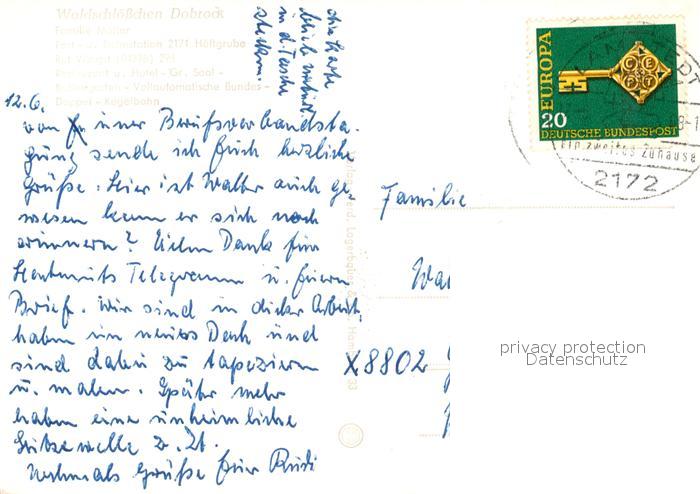 Waldschlößchen Dobrock
Familie Möller
Post- u. Bahnstation 2171 Höftgrube
Ruf Wingst (04778) 291
Restaurant u. Hotel - Gr. Saal -
- Vollautomatische Bundes -
Doppel - Kegelbahn
die Karte
blieb
in d. Tasche
stecken.
12.6.
von unser Berufsverbandsta-
gung sende ich Euch herzliche
Grüße. Hier ist Walter auch ge-
wesen kann er sich noch
erinnern? Vielen Dank für
Telegramm u. Euern
Brief. Wir sind in dicker Arbeit,
haben ein neues Dach und
sind dabei zu tapezieren
u. malen. Später mehr
haben eine unheimliche
Hitzewelle z. Zt.
Nochmals Grüße Euer Rudi
EUROPA
CEPT
20
DEUTSCHE BUNDESPOST
Ein zweites Zuhause
2172
Familie
Wa
X8802
privacy protection
Datenschutz